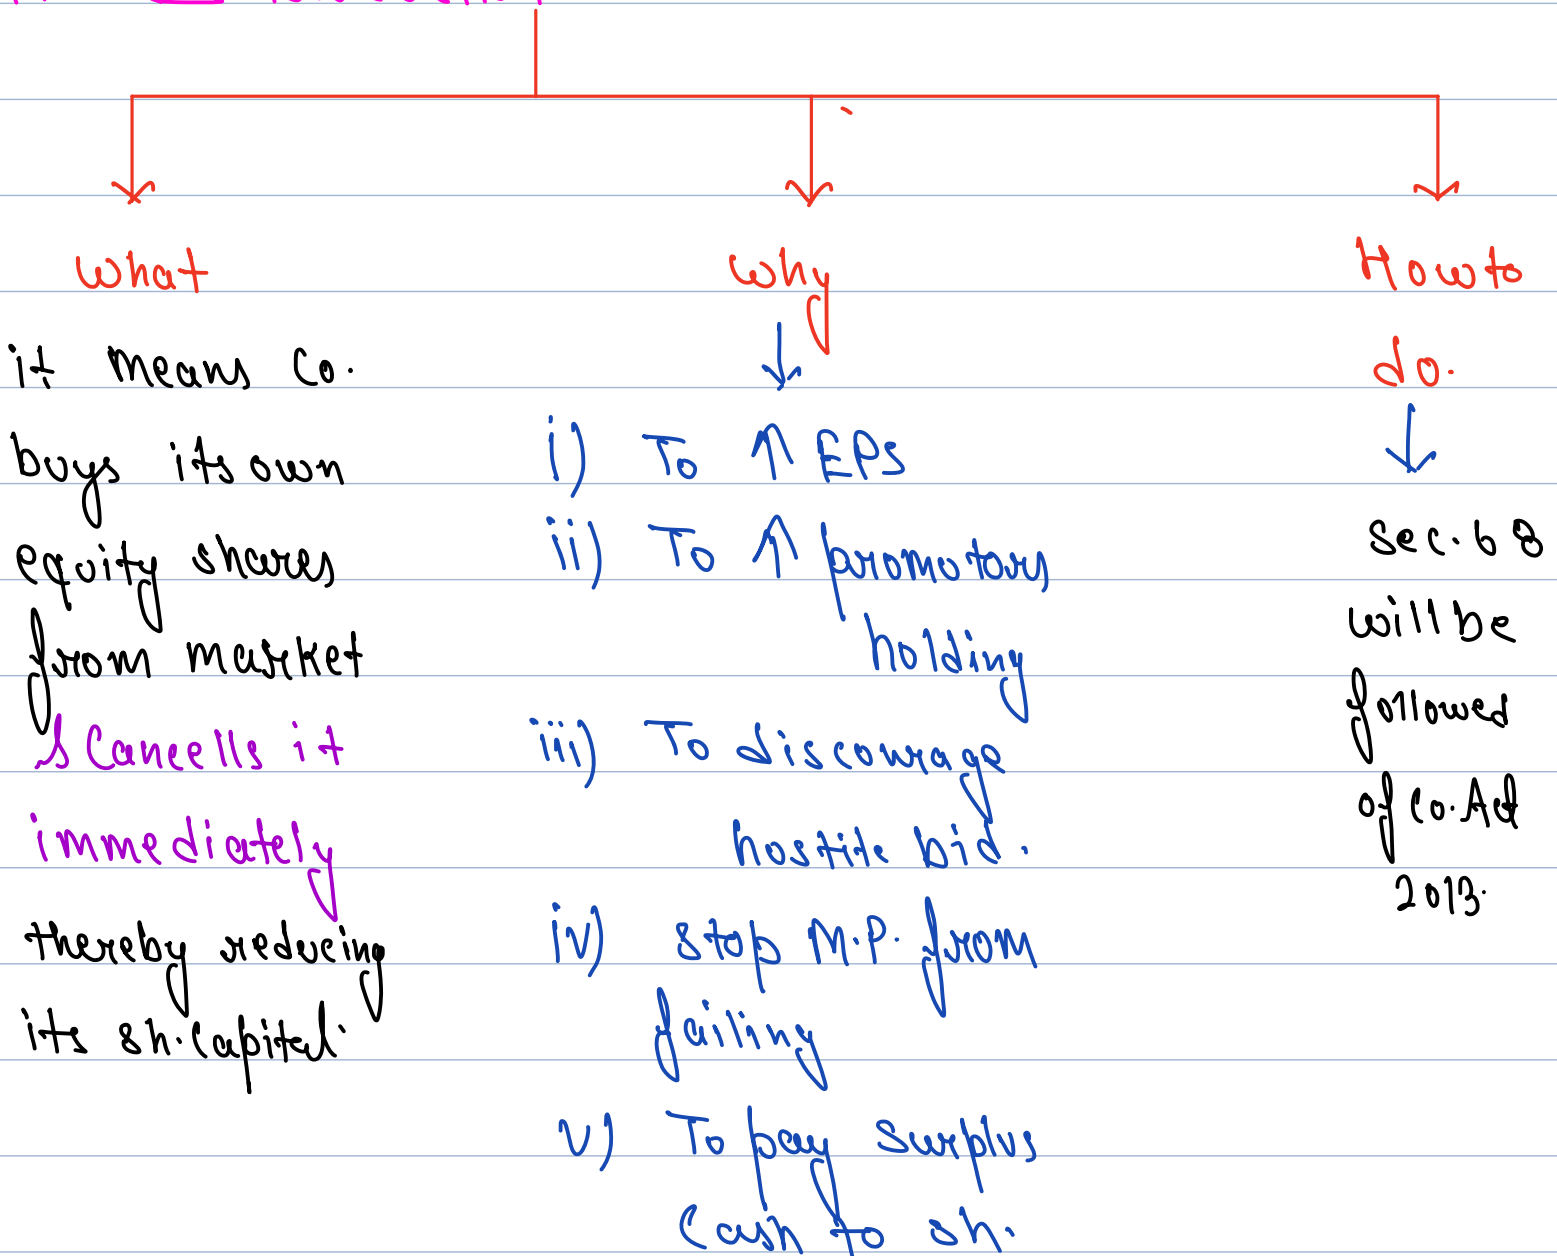 What
it means Co.
buys its own
equity shares
from market
& Cancells it
immediately
thereby reducing
its sh. Capital.
Why
i) To ↑ EPS
ii) To ↑ promotors
holding
iii) To discourage
hostile bid.
iv) stop M.P. from
failing
v) To pay surplus
Cash to sh.
How to
do.
Sec. 68
will be
followed
of Co. Act
2013.